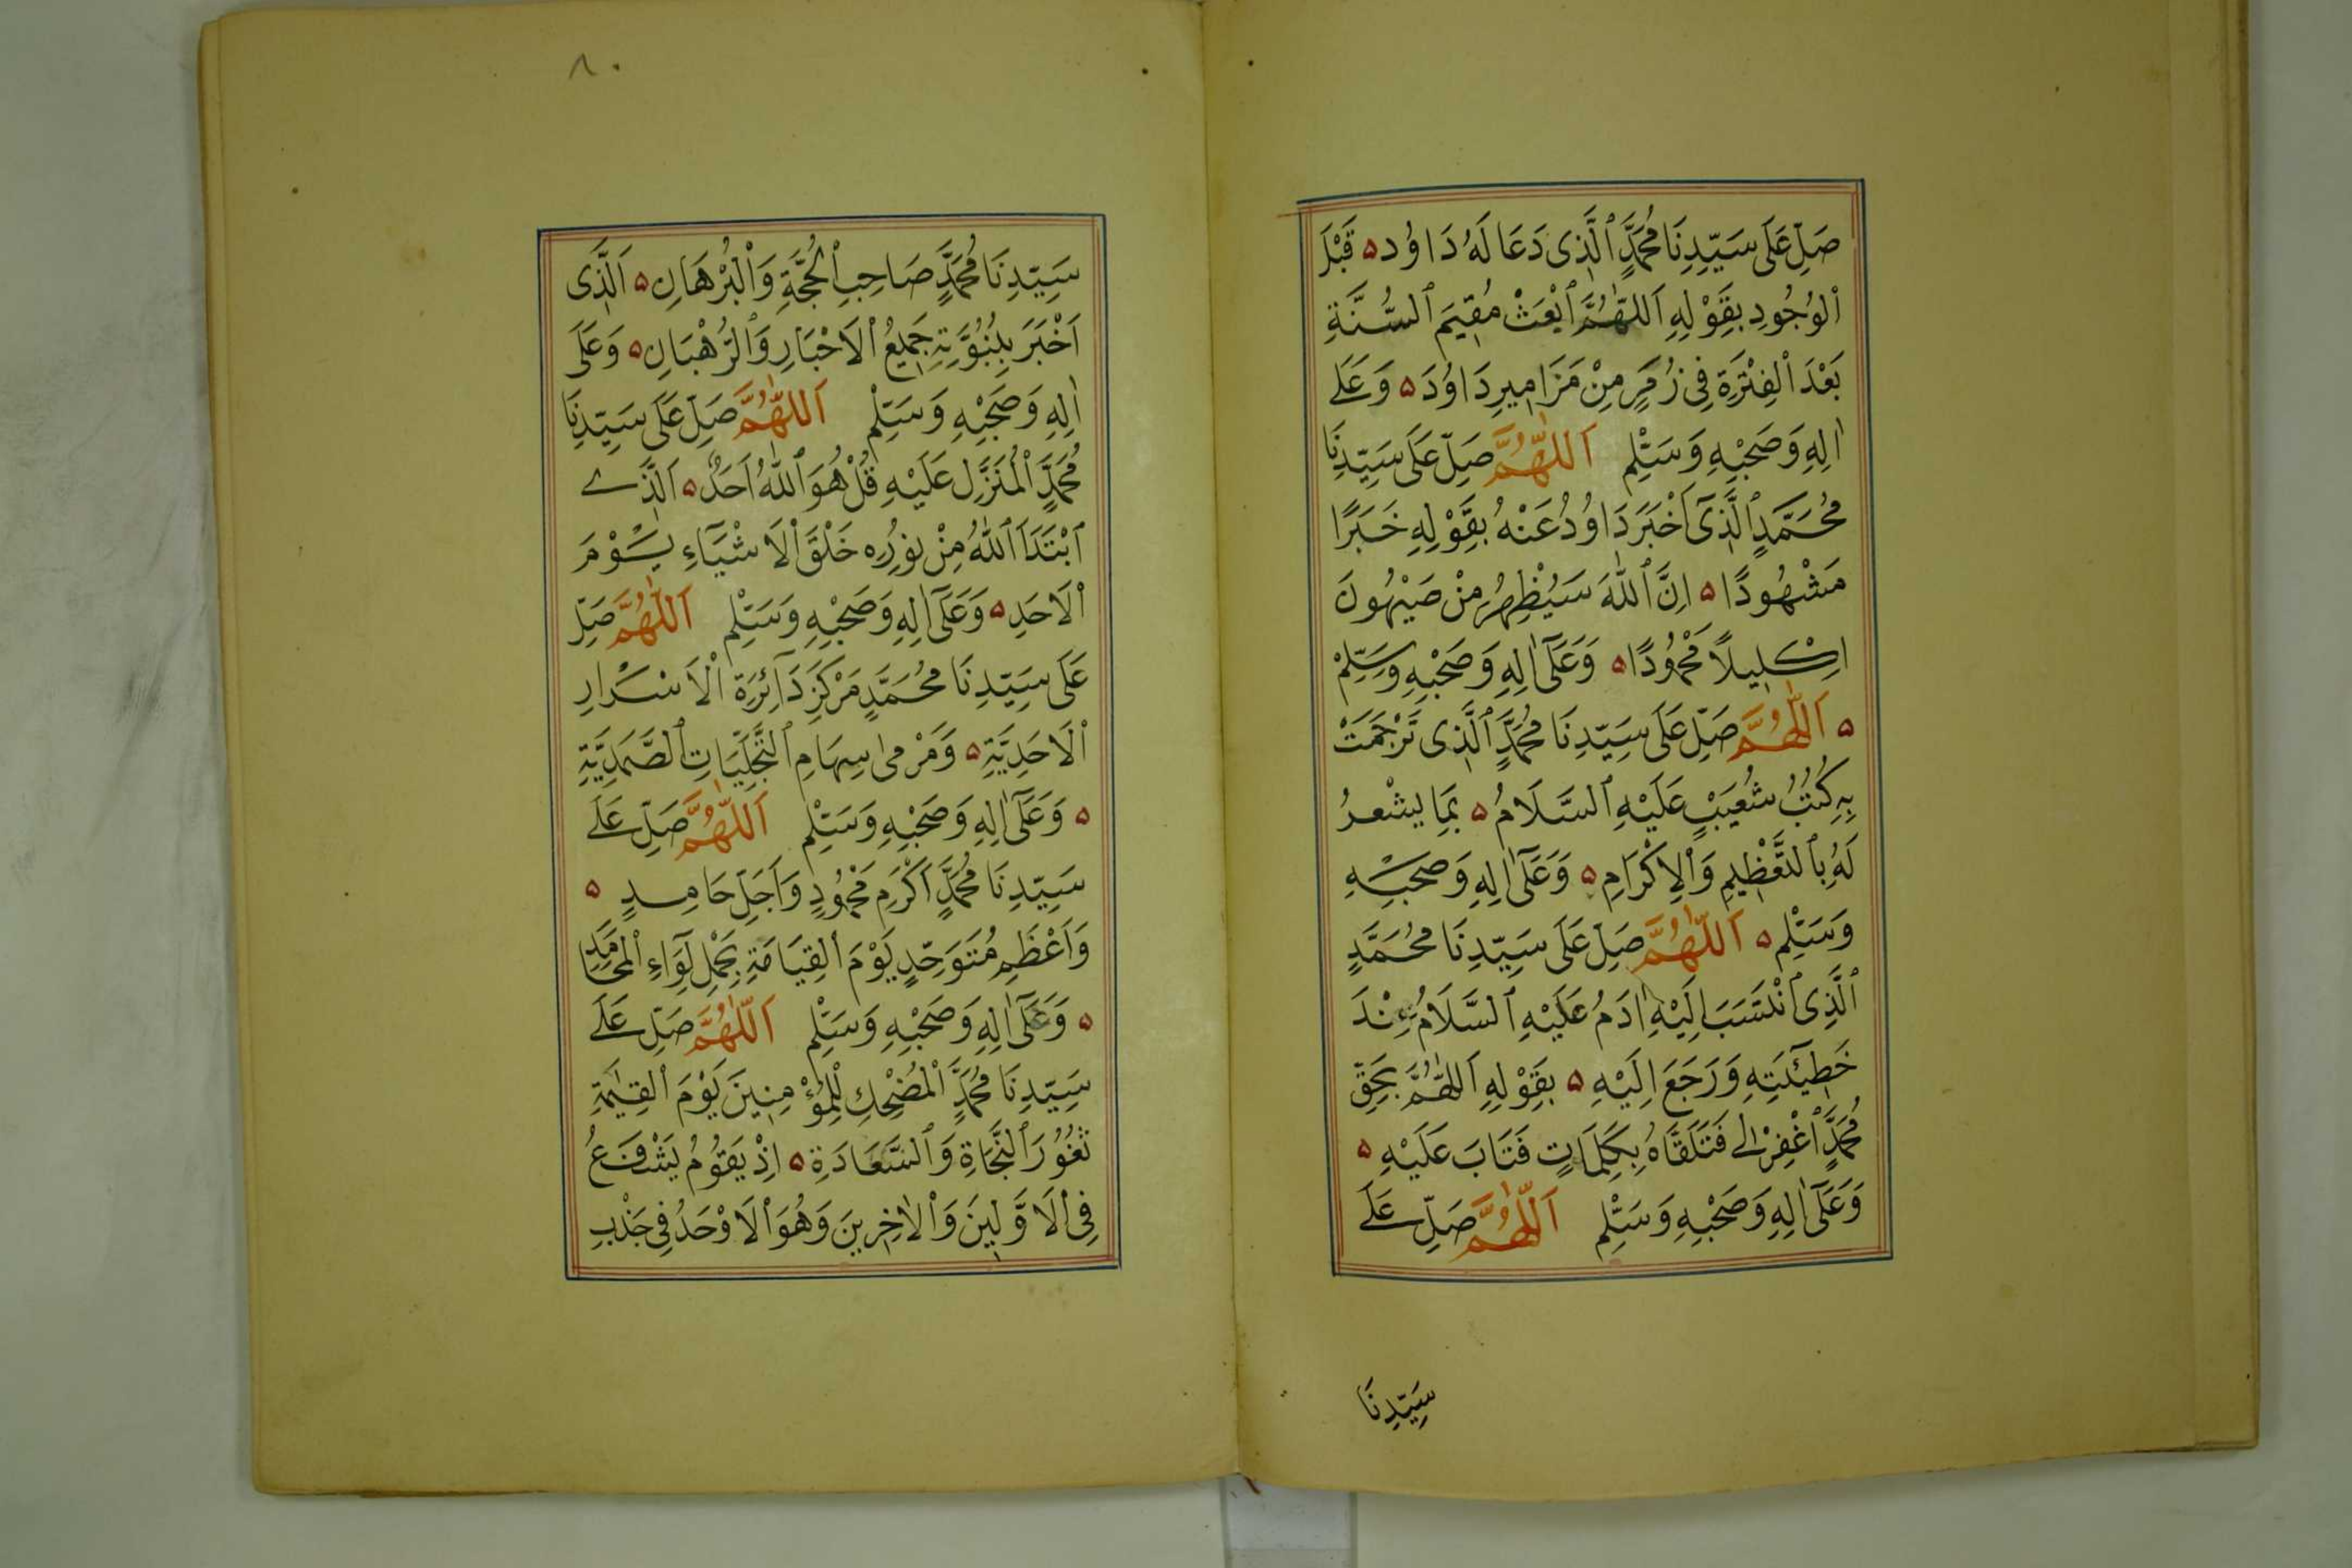 صَلِّ عَلَى سَيِّدِنَا مُحَمَّدٍ ٱلَّذِى دَعَا لَهُ دَاوُد ە قَبْلَ
ٱلْوُجُودِ بِقَوْلِهِ اَللّٰهُمَّ ٱبْعَثْ مُقِيمَ ٱلسُّنَّةِ
بَعْدَ ٱلْفِتْرَةِ فِى زُمَرٍ مِنْ مَزَامِيرِ دَاوُدَ ە وَعَلَى
اٰلِهِ وَصَحْبِهِ وَسَلِّمْ اَللّٰهُمَّ صَلِّ عَلَى سَيِّدِنَا
مُحَمَّدٍ ٱلَّذِىٓ اَخْبَرَ دَاوُدُ عَنْهُ بِقَوْلِهِ خَبَرًا
مَشْهُودًا ە اِنَّ ٱللّٰهَ سَيُظْهِرُ مِنْ صَيْهُونَ
اِكْلِيلًا مَحْمُودًا ە وَعَلَىٓ اٰلِهِ وَصَحْبِهِ وَسَلِّمْ
ە اَللّٰهُمَّ صَلِّ عَلَى سَيِّدِنَا مُحَمَّدٍ ٱلَّذِى تَرْجَمَتْ
بِهِ كُتُبُ شُعَيْبٍ عَلَيْهِ ٱلسَّلَامُ ە بِمَا يُشْعِرُ
لَهُ بِٱلتَّعْظِيمِ وَٱلْاِكْرَامِ ە وَعَلَىٓ اٰلِهِ وَصَحْبِهِ
وَسَلِّمْ ە اَللّٰهُمَّ صَلِّ عَلَى سَيِّدِنَا مُحَمَّدٍ
ٱلَّذِى ٱنْتَسَبَ اِلَيْهِ اٰدَمُ عَلَيْهِ ٱلسَّلَامُ عِنْدَ
خَطِيٓئَتِهِ وَرَجَعَ اِلَيْهِ ە بِقَوْلِهِ اَللّٰهُمَّ بِحَقِّ
مُحَمَّدٍ ٱغْفِرْ لِى فَتَلَقَّاهُ بِكَلِمَاتٍ فَتَابَ عَلَيْهِ ە
وَعَلَىٓ اٰلِهِ وَصَحْبِهِ وَسَلِّمْ اَللّٰهُمَّ صَلِّ عَلَى
سَيِّدِنَا
٨٠
سَيِّدِنَا مُحَمَّدٍ صَاحِبِ ٱلْحُجَّةِ وَٱلْبُرْهَانِ ە اَلَّذِى
اَخْبَرَ بِنُبُوَّتِهِ جَمِيعُ ٱلْاَحْبَارِ وَٱلرُّهْبَانِ ە وَعَلَى
اٰلِهِ وَصَحْبِهِ وَسَلِّمْ اَللّٰهُمَّ صَلِّ عَلَى سَيِّدِنَا
مُحَمَّدٍ ٱلْمُنَزَّلِ عَلَيْهِ قُلْ هُوَ ٱللّٰهُ اَحَدٌ ە اَلَّذِى
ٱبْتَدَاَ ٱللّٰهُ مِنْ نُورِهِ خَلْقَ ٱلْاَشْيَآءِ يَوْمَ
ٱلْاَحَدِ ە وَعَلَىٓ اٰلِهِ وَصَحْبِهِ وَسَلِّمْ اَللّٰهُمَّ صَلِّ
عَلَى سَيِّدِنَا مُحَمَّدٍ مَرْكَزِ دَآئِرَةِ ٱلْاَسْرَارِ
ٱلْاَحَدِيَّةِ ە وَمَرْمٰى سِهَامِ ٱلتَّجَلِّيَاتِ ٱلصَّمَدِيَّةِ
ە وَعَلَىٓ اٰلِهِ وَصَحْبِهِ وَسَلِّمْ اَللّٰهُمَّ صَلِّ عَلَى
سَيِّدِنَا مُحَمَّدٍ اَكْرَمِ مَحْمُودٍ وَاَجَلِّ حَامِدٍ ە
وَاَعْظَمِ مُتَوَحِّدٍ يَوْمَ ٱلْقِيَامَةِ بِحَمْلِ لِوَآءِ ٱلْمَحَامِدِ
ە وَعَلَىٓ اٰلِهِ وَصَحْبِهِ وَسَلِّمْ اَللّٰهُمَّ صَلِّ عَلَى
سَيِّدِنَا مُحَمَّدٍ ٱلْمُضْحِكِ لِلْمُؤْمِنِينَ يَوْمَ ٱلْقِيٰمَةِ
ثُغُورَ ٱلنَّجَاةِ وَٱلسَّعَادَةِ ە اِذْ يَقُومُ يَشْفَعُ
فِى ٱلْاَوَّلِينَ وَٱلْاٰخِرِينَ وَهُوَ ٱلْاَوْحَدُ فِى جَذْبِ